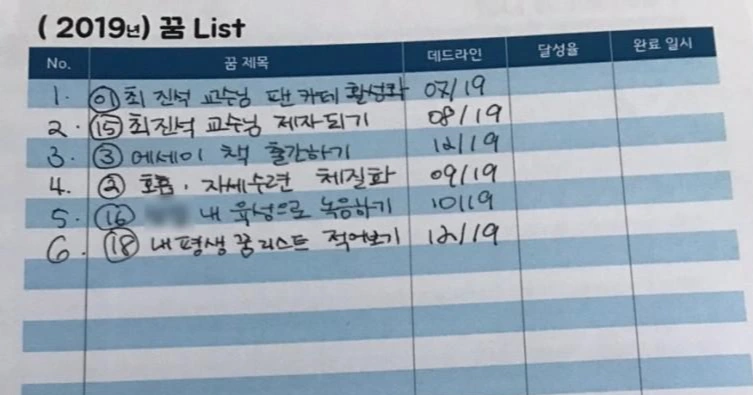 ( 2019년) 꿈 List
No. 꿈 제목 데드라인 달성율 완료 일시
1. ㉮ 최진석 교수님 팬카페 활성화 07/19
2. ⑮ 최진석 교수님 제자되기 08/19
3. ③ 에세이 책 출간하기 12/19
4. ② 호흡. 자세수련 체질화 09/19
5. ⑯ 내 육성으로 녹음하기 10/19
6. ⑱ 내평생꿈리스트 적어보기 12/19